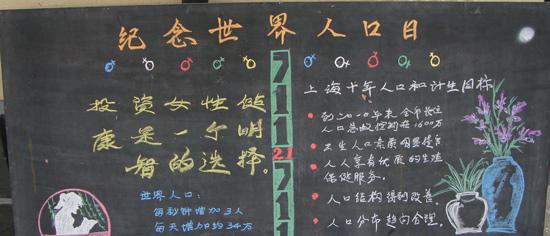 纪念世界人口日
投资女性健
康是一个明
智的选择。
世界人口:
每秒钟增加3人
每天增加约34万
7
1
1
21
7
1
1
上海十年人口和计生目标
到2010年末全市
人口总数控制在1600万
出生人口素质明显提高
人人享有优质的生殖
保健服务。
人口结构得到改善。
人口分布趋向合理。